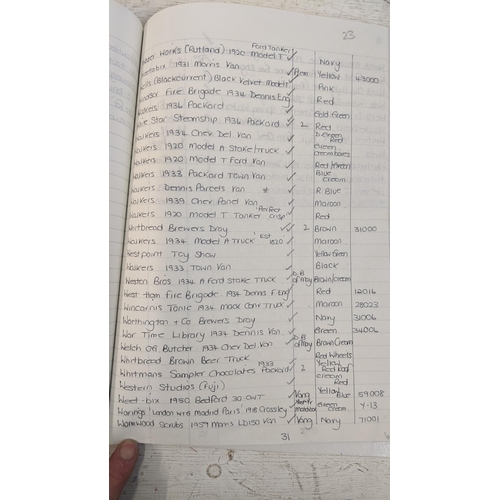 23
Water Works (Rutland) 1920 Model T Ford Tanker ✓ Navy
1931 Morris Van Yellow 43000
(Blackcurrent) Black Velvet Model T Pink
Fire Brigade 1934 Dennis Eng Red
1936 Packard Gold Green
Star Steamship 1936 Packard 2 Red
Walkers 1934 Chev Del. Van D. Green Red
Walkers 1920 Model A Stake/truck Green
Walkers 1920 Model T Ford Van Red/Green
Walkers 1933 Packard Town Van Blue Cream
Walkers Dennis Parcels Van * R Blue
Walkers 1939 Chev Panel Van Maroon
Walkers 1920 Model T Tanker 'Perfect Crisp' Red
Whitbread Brewers Dray 2 Brown 31000
Walkers 1934 Model A Truck 'Est 1820 Maroon
Westpoint Toy Show Yellow Green
Walkers 1933 Town Van Black
Weston Bros 1934 A Ford Stake Truck Brown/cream
West Ham Fire Brigade 1934 Dennis F. Eng Red 12016
Wincarnis Tonic 1934 Mack Canv Truck Maroon 28023
Worthington + Co Brewers Dray Navy 31006
War Time Library 1934 Dennis Van Green 34006
Welch OG Butcher 1934 Chev Del Van Brown Cream
Whitbread Brown Beer Truck Red Wheels
Whitmans Sampler Chocolates 1933 Packard 2 Yellow Red Roof
Western Studios (Fuji) Cream Red
Weet-bix 1950 Bedford 30 CWT Vang Yellow Blue 59008
Warings 'London with Madrid Paris' 1918 Crossley Green Cream Y-13
Wormwood Scrubs 1959 Morris LD150 Van Vang Navy 71001
31